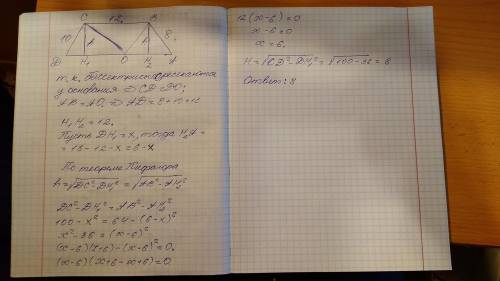 C 12. B
10 h h 8.
D H₁ O H₂ A
т. к. биссектрисы пересекаются
у основания ⇒ CD=DO;
AB=AO, ⇒ AD=8+10=18
H₁H₂=12.
Пусть DH₁=x, тогда H₂A=
=18-12-x=6-x
По теореме Пифагора
h=√DC²-DH₁² = √AB²-AH₂²
DC²-DH₁²=AB²-AH₂²
100-x²=64-(6-x)²
x²-36=(x-6)²
(x-6)(x+6)-(x-6)²=0.
(x-6)(x+6-x+6)=0
12(x-6)=0
x-6=0
x=6.
H=√CD²-DH₁²=√100-36=8
Ответ: 8